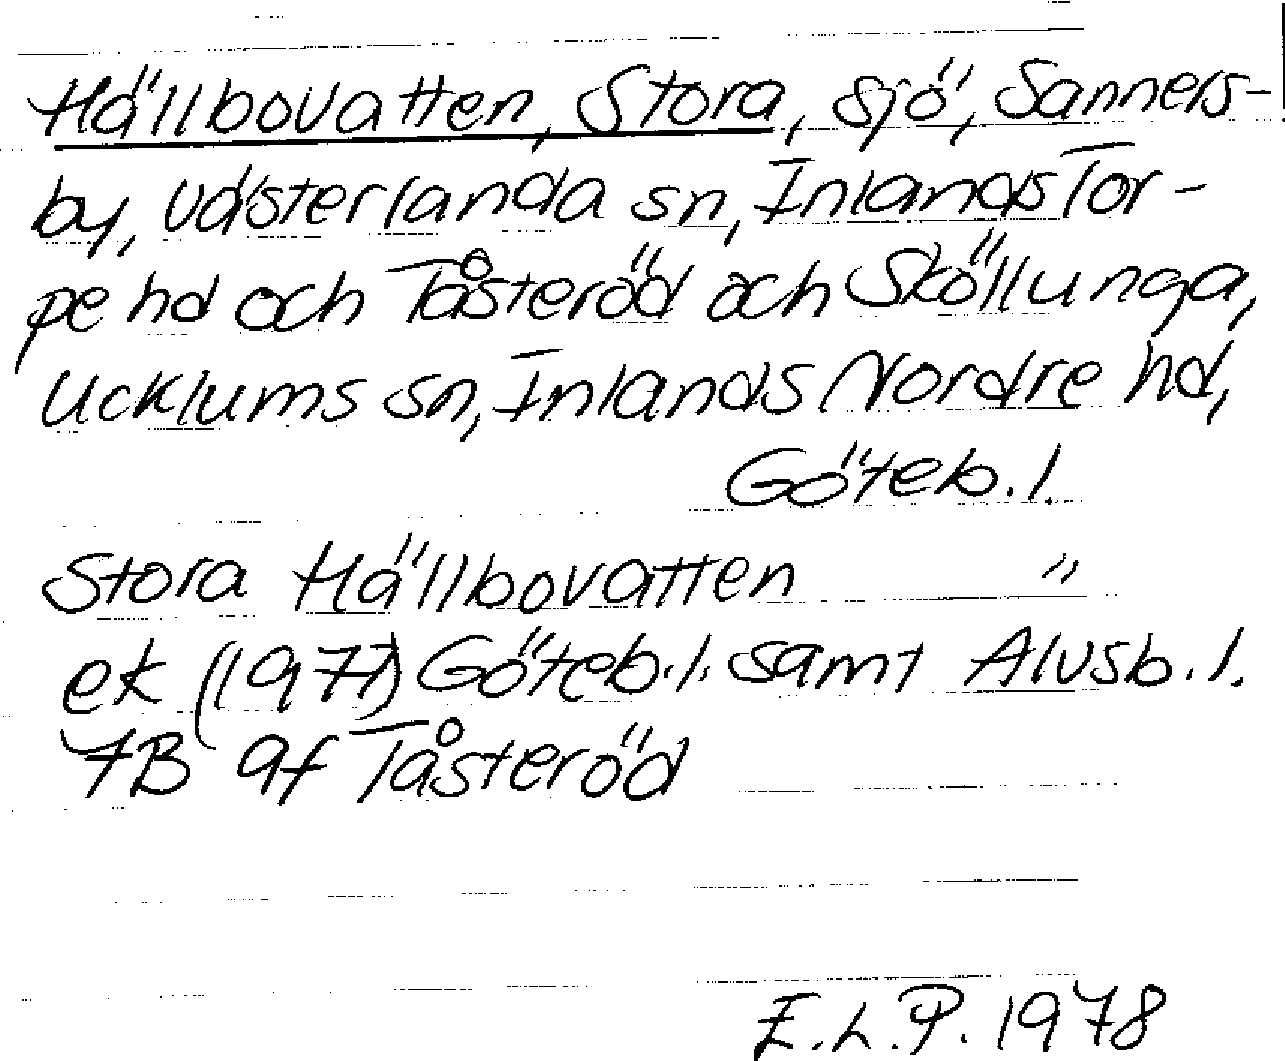 Hällbovatten, Stora, sjö, Sanners-
by, Västerlanda sn, Inlands Tor-
pe hd och Tåsteröd och Sköllunga,
Ucklums sn, Inlands Nordre hd,
Göteb. l.
Stora Hällbovatten "
ek (1977) Göteb. l. samt Älvsb. l.
7B 9f Tåsteröd
E.L.P. 1978